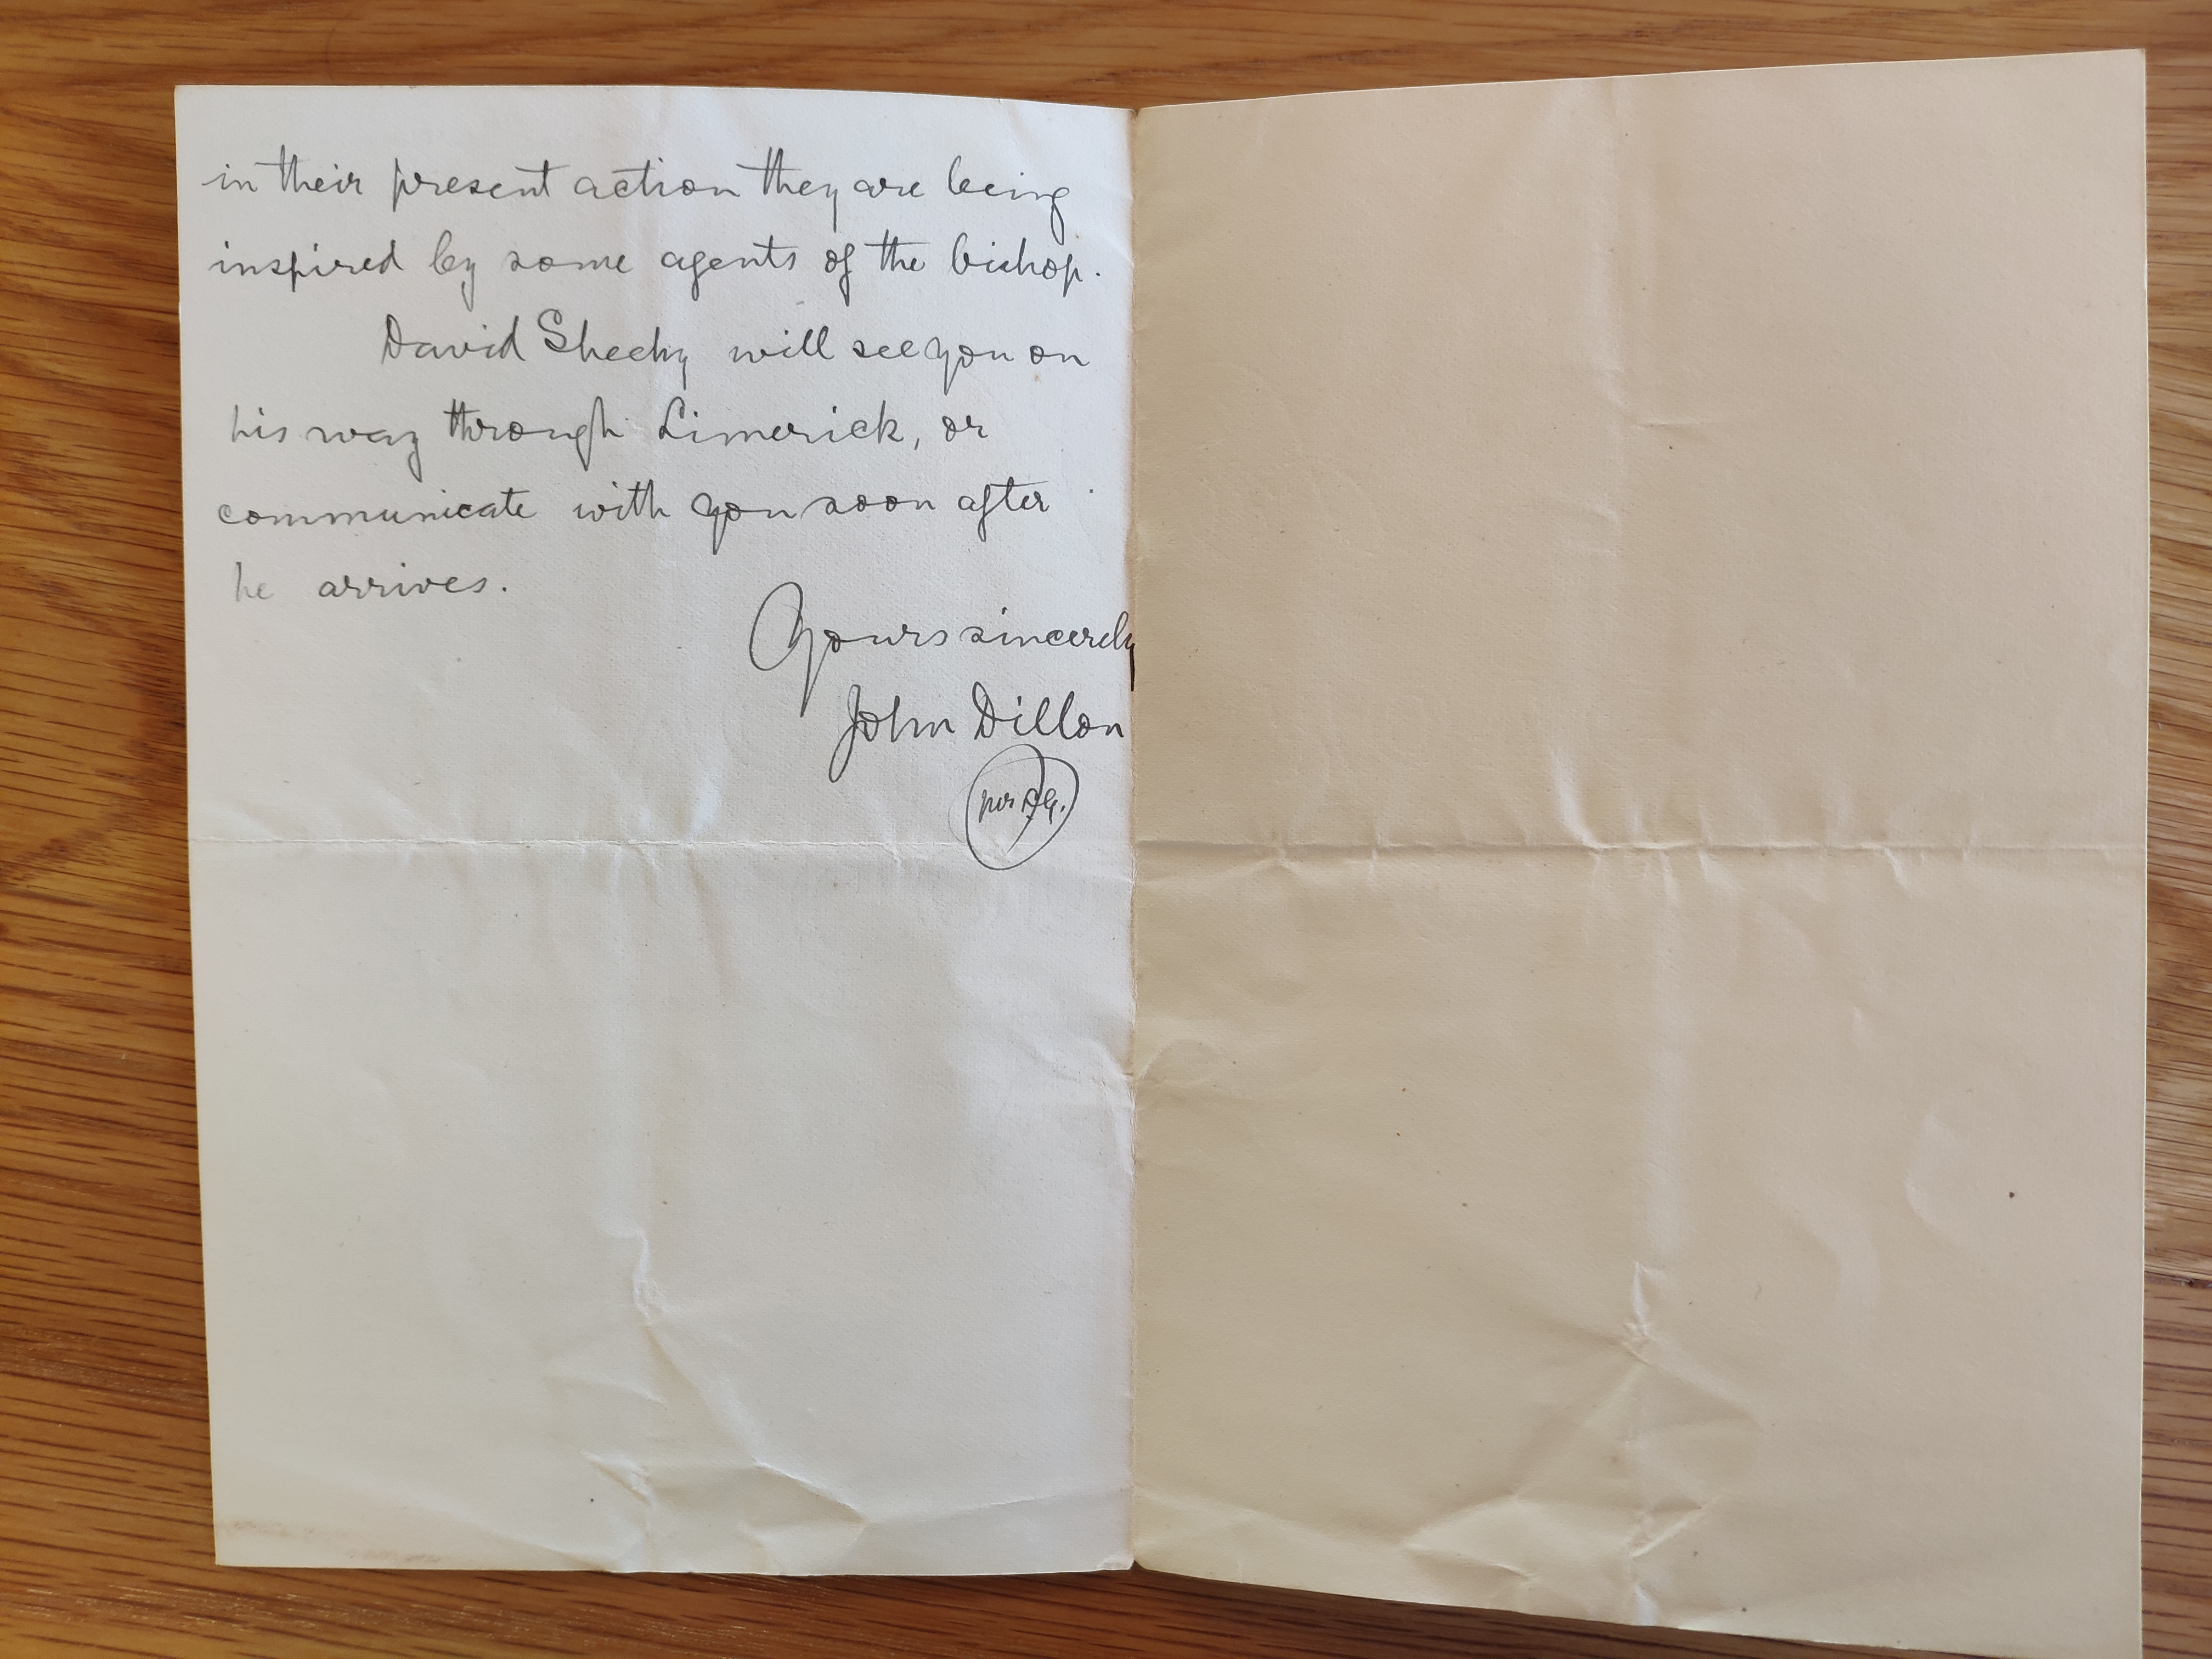 in their present action they are being
inspired by some agents of the bishop.
David Sheehy will see you on
his way through Limerick, or
communicate with you soon after
he arrives.
Yours sincerely
John Dillon
per